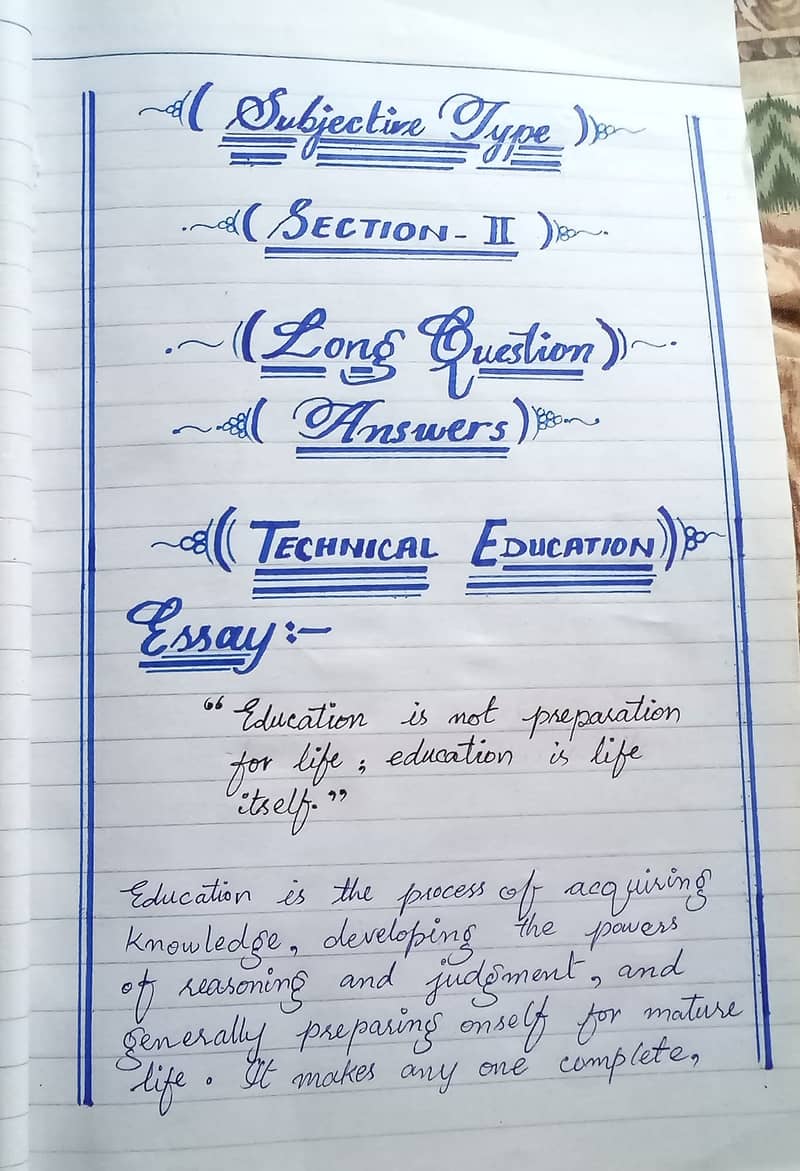 ( Subjective Type )
( SECTION - II )
( Long Question )
( Answers )
(( TECHNICAL EDUCATION ))
Essay :-
“ Education is not preparation
for life ; education is life
itself. ”
Education is the process of acquiring
knowledge, developing the powers
of reasoning and judgment, and
generally preparing onself for mature
life . It makes any one complete,